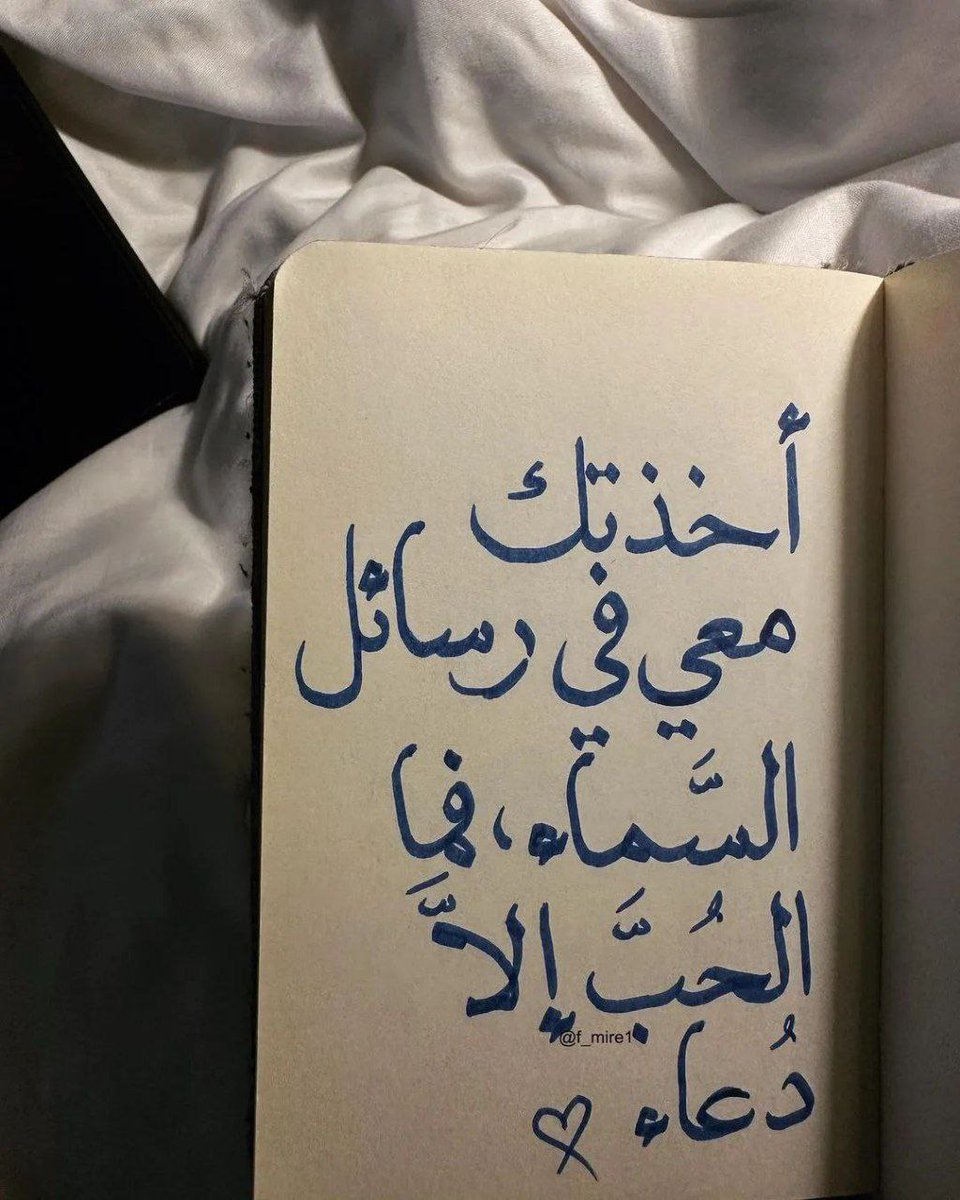 أخذتك
معي في رسائل
السَّماء، فما
الحُبَّ إلاَّ
@f_mire1
دُعاء